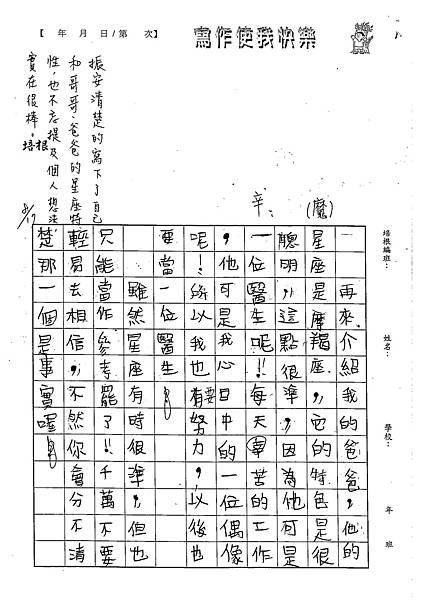 【 年 月 日/第 次】
寫作使我快樂
振安清楚的寫下了自己
和哥哥、爸爸的星座特
性,也不忘提及個人想法
實在很棒。培根
(魔)
辛:
培根編班:
姓名:
學校:
年 班
再來介紹我的爸爸,他的
星座是摩羯座,它的特色,是很
聰明,這點很準,因為他可是
一位醫生呢!每天辛苦的工作
,他可是我心目中的一位偶像
呢!所以我也要有努力,以後也
要當一位醫生。
雖然星座有時很準,但也
只能當作參考罷了!!千萬不要
輕易去相信,不然你會分不清
楚那一個是事實喔!